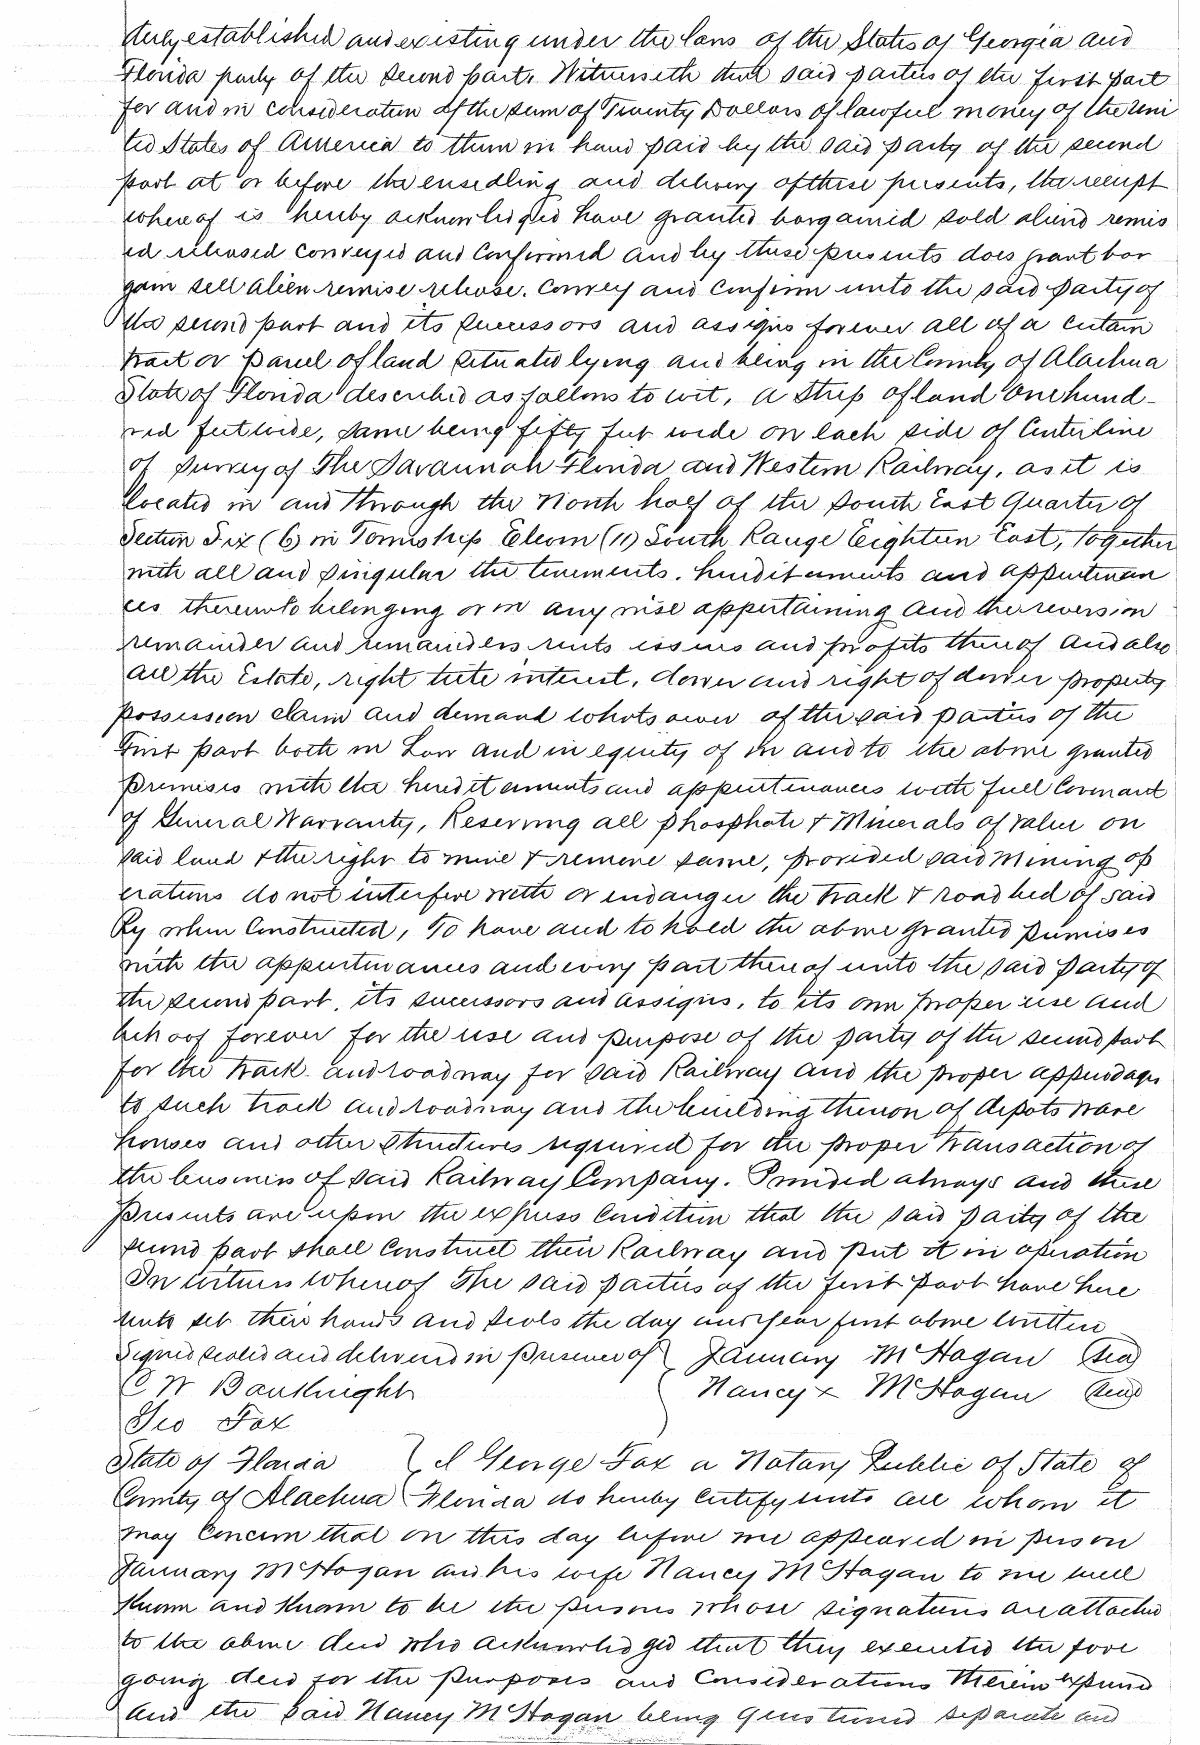 duly established and existing under the laws of the States of Georgia and
Florida party of the second part, Witnesseth that said parties of the first part
for and in consideration of the sum of Twenty Dollars of lawful money of the Uni
ted States of America to them in hand paid by the said party of the second
part at or before the ensealing and delivery of these presents, the receipt
whereof is hereby acknowledged have granted bargained sold aliend remis
ed released conveyed and confirmed and by these presents does grant bar
gain sell alien remise release, convey and confirm unto the said party of
the second part and its successors and assigns forever all of a certain
tract or parcel of land situated lying and being in the County of Alachua
State of Florida described as follows to wit, a strip of land one hund-
red feet wide, same being fifty feet wide on each side of Centerline
of survey of The Savannah Florida and Western Railway, as it is
located in and through the North half of the South East Quarter of
Section Six (6) in Township Eleven (11) South Range Eighteen East, Together
with all and singular the tenements, hereditaments and appurtenan
ces thereunto belonging or in any wise appertaining and the reversion
remainder and remainders rents issues and profits thereof and also
all the Estate, right title interest, dower and right of dower property
possession claim and demand whatsoever of the said parties of the
First part both in Law and in equity of in and to the above granted
premises with the hereditaments and appurtenances with full Covenant
of General Warranty, Reserving all phosphate & Minerals of value on
said land & the right to mine & remove same, provided said mining op
erations do not interfere with or endanger the track & road bed of said
Ry when Constructed, To have and to hold the above granted premises
with the appurtenances and every part thereof unto the said party of
the second part, its successors and assigns, to its own proper use and
behoof forever for the use and purpose of the party of the second part
for the track and roadway for said Railway and the proper appendages
to such track and roadway and the building thereon of depots ware
houses and other structures required for the proper transaction of
the business of said Railway Company. Provided always and these
presents are upon the express Condition that the said party of the
second part shall Construct their Railway and put it in operation
In witness whereof The said parties of the first part have here
unto set their hands and seals the day and year first above written
Signed sealed and delivered in presence of January McHagan (seal)
C W Bauknight Nancy x McHagan (seal)
Geo Fox
State of Florida I George Fox a Notary Public of State of
County of Alachua Florida do hereby certify unto all whom it
may Concern that on this day before me appeared in person
January McHagan and his wife Nancy McHagan to me well
known and known to be the persons whose signatures are attached
to the above deed who acknowledged that they executed the fore
going deed for the purposes and Considerations therein expressed
and the said Nancy McHagan being questioned separate and